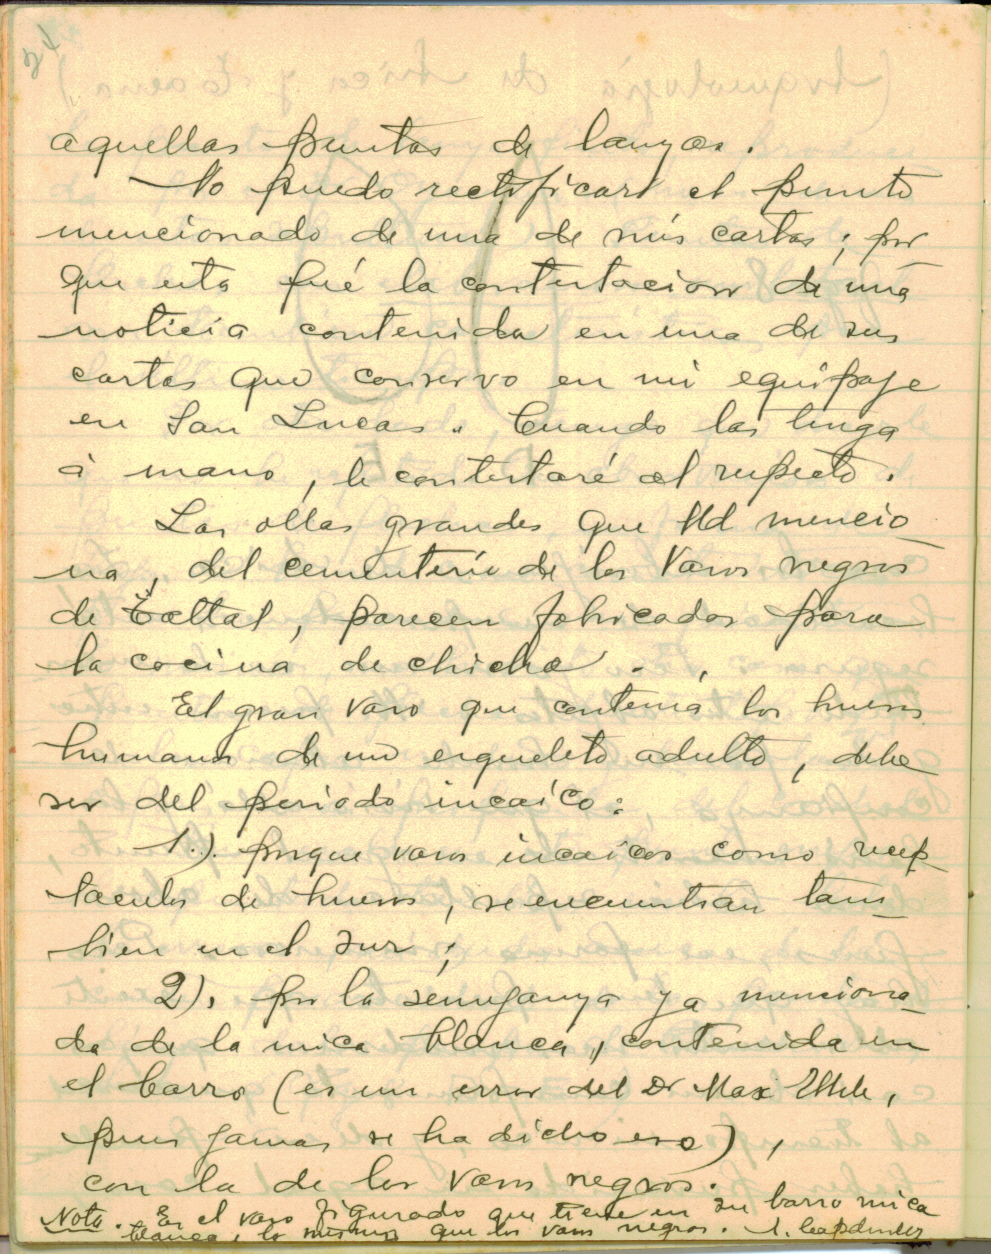 24
aquellas puntas de lanzas.
No puedo rectificar el punto
mencionado de una de mis cartas; por
que esta fué la contestacion de una
noticia contenida en una de sus
cartas que conservo en mi equipaje
en San Lucas. Cuando las tenga
á mano, le contestaré al respecto.
Las ollas grandes, que Ud mencio
na, del cementerio de los Vasos negros
de Taltal, parecen fabricados para
la cocina, de chicha.
El gran vaso que contenia los huesos
humanos de un esqueleto adulto, debe
ser del periodo incaíco:
1.). porque vasos incaícos como recep
taculos de huesos, se encuentran tam
bien en el sur;
2). por la semejanza ya menciona
da de la mica blanca, contenida en
el barro (es un error del Dr Max Uhle,
pues jamas se ha dicho eso),
con la de los vasos negros.
Nota. Es el vaso figurado que tiene en su barro mica
blanca, lo mismo que los vasos negros. A. Capdeville